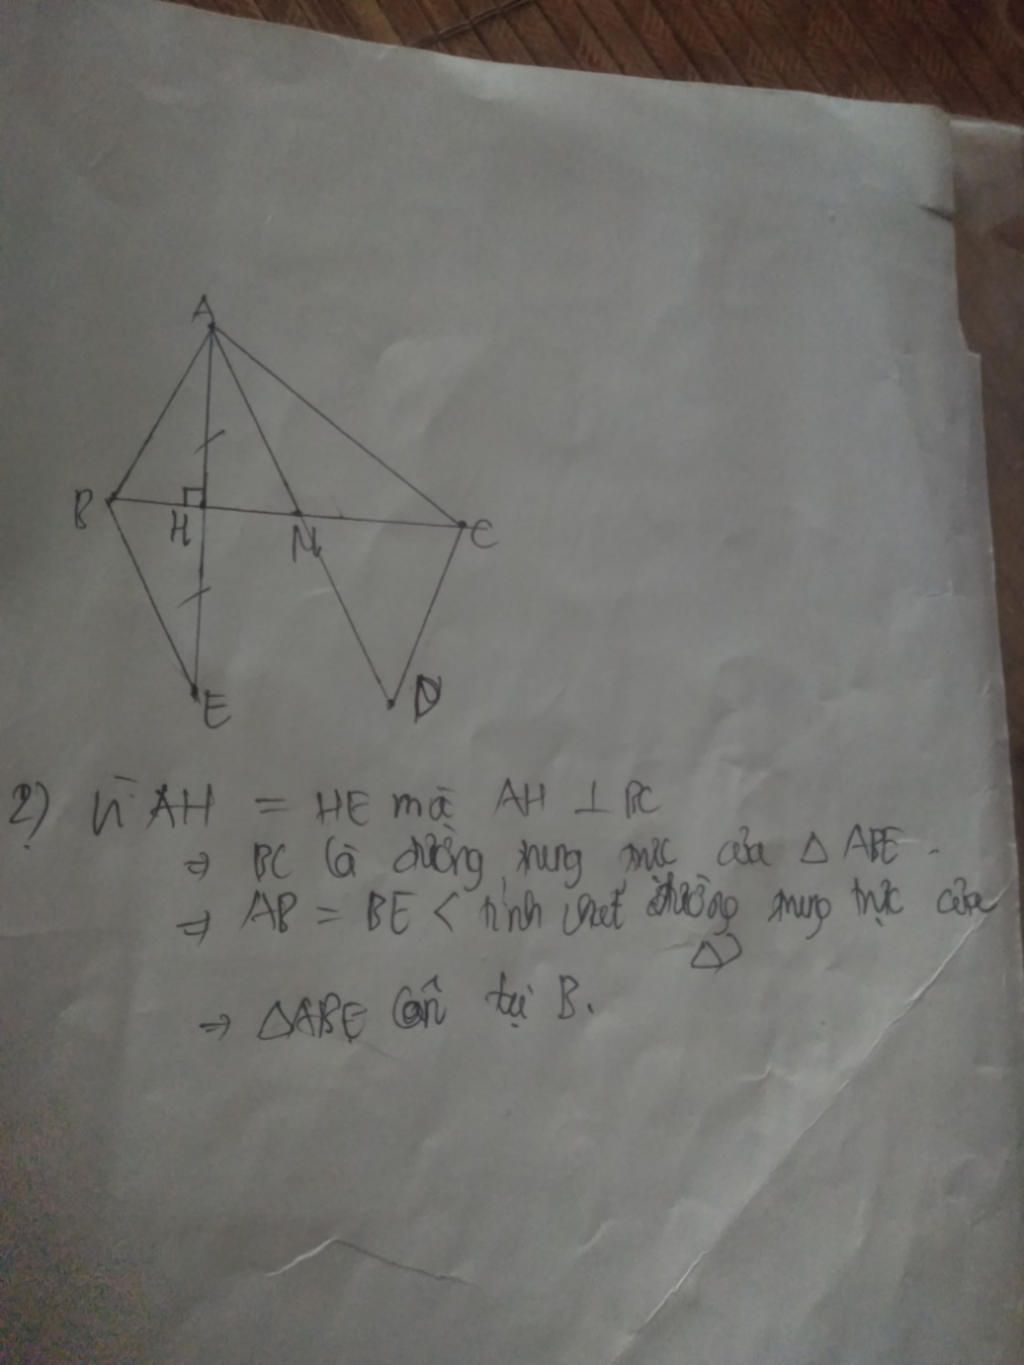 A
B
H
M
C
E
D
2) Vì AH = HE mà AH ⊥ BC
⇒ BC là đường trung trực của Δ ABE.
⇒ AB = BE < tính chất đường trung trực của
Δ>
⇒ ΔABE cân tại B.